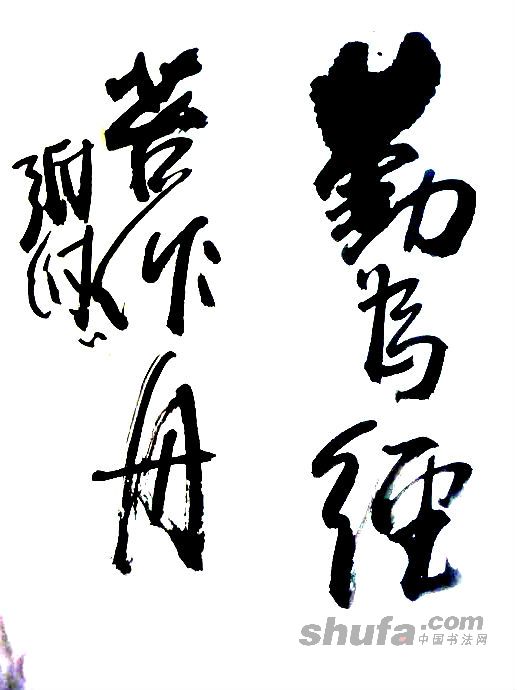 勤为經
苦作舟
shufa.com
中国书法网